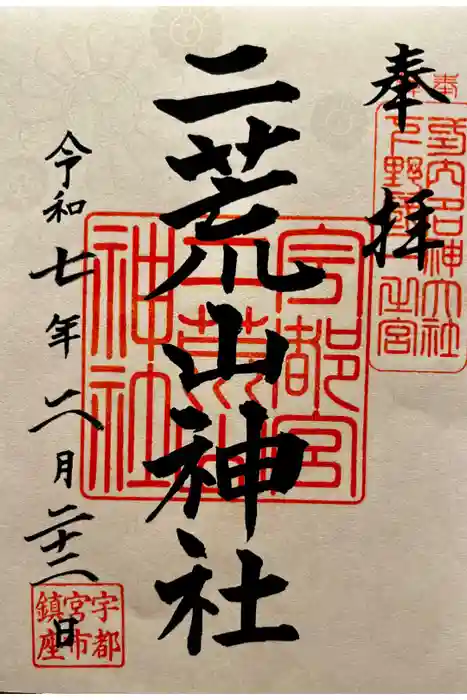 奉拝
式内名神大社
下野國一之宮
二荒山神社
宇都宮
二荒山
神社
令和七年八月二十二日
宇都
宮市
鎮座